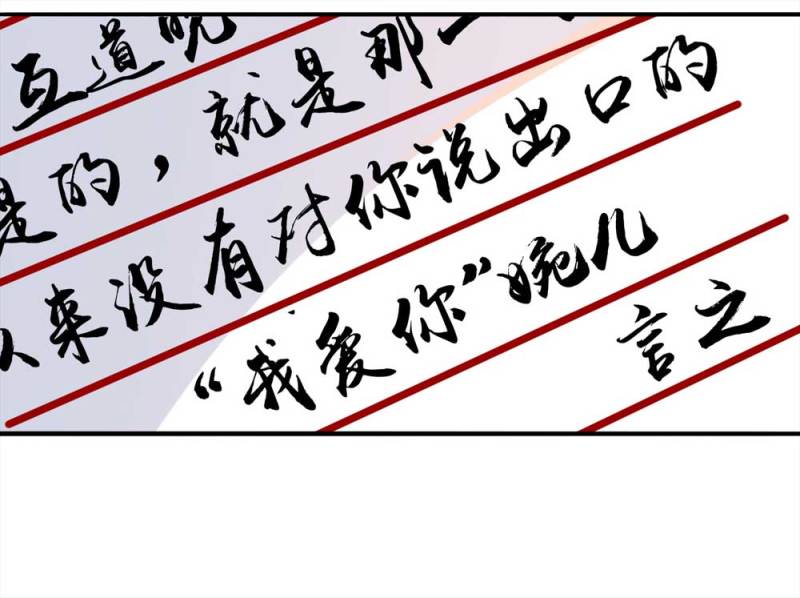 互道晚
是的，就是那一
以来没有对你说出口的
“我爱你”婉儿
言之